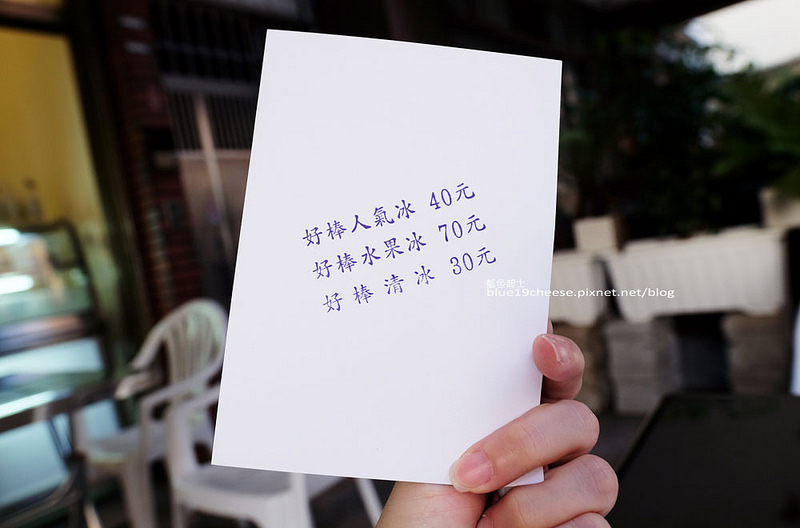 好棒人氣冰 40元
好棒水果冰 70元
好棒清冰 30元
藍色起士
blue19cheese.pixnet.net/blog